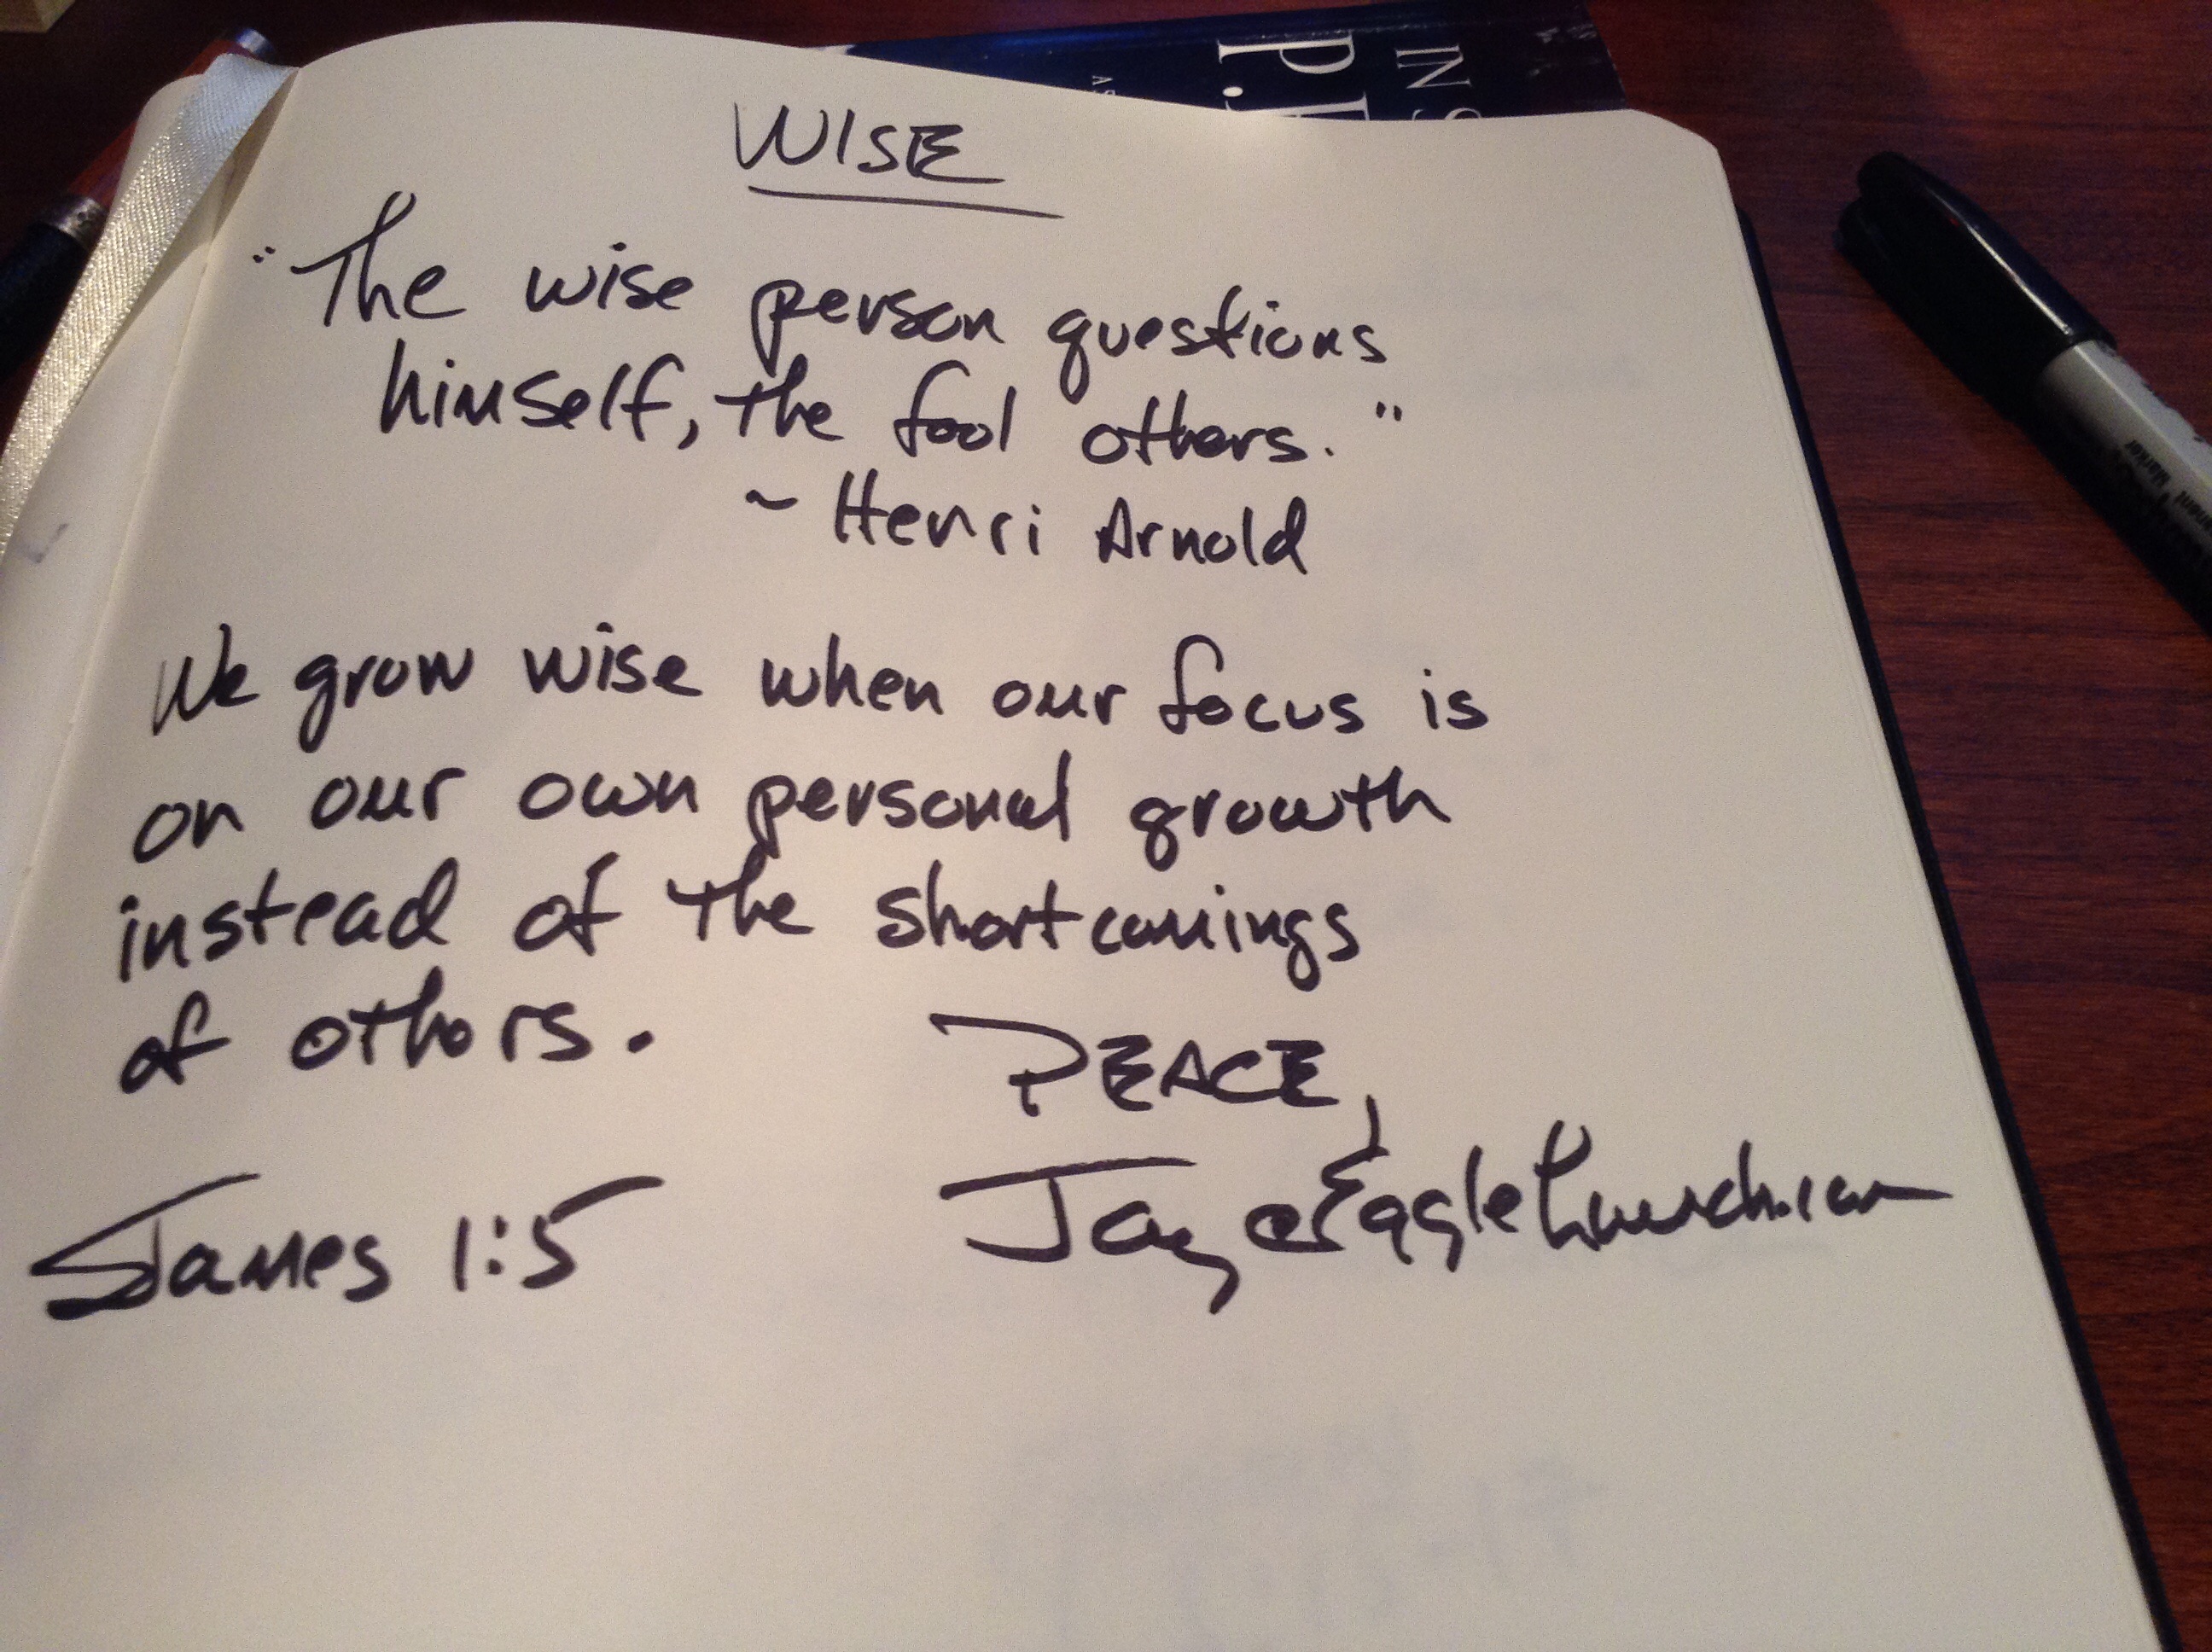 WISE
"The wise person questions
himself, the fool others."
~ Henri Arnold
We grow wise when our focus is
on our own personal growth
instead of the shortcomings
of others.
PEACE,
James 1:5
Jay@EagleLaunch.com
INS
P.
Marker